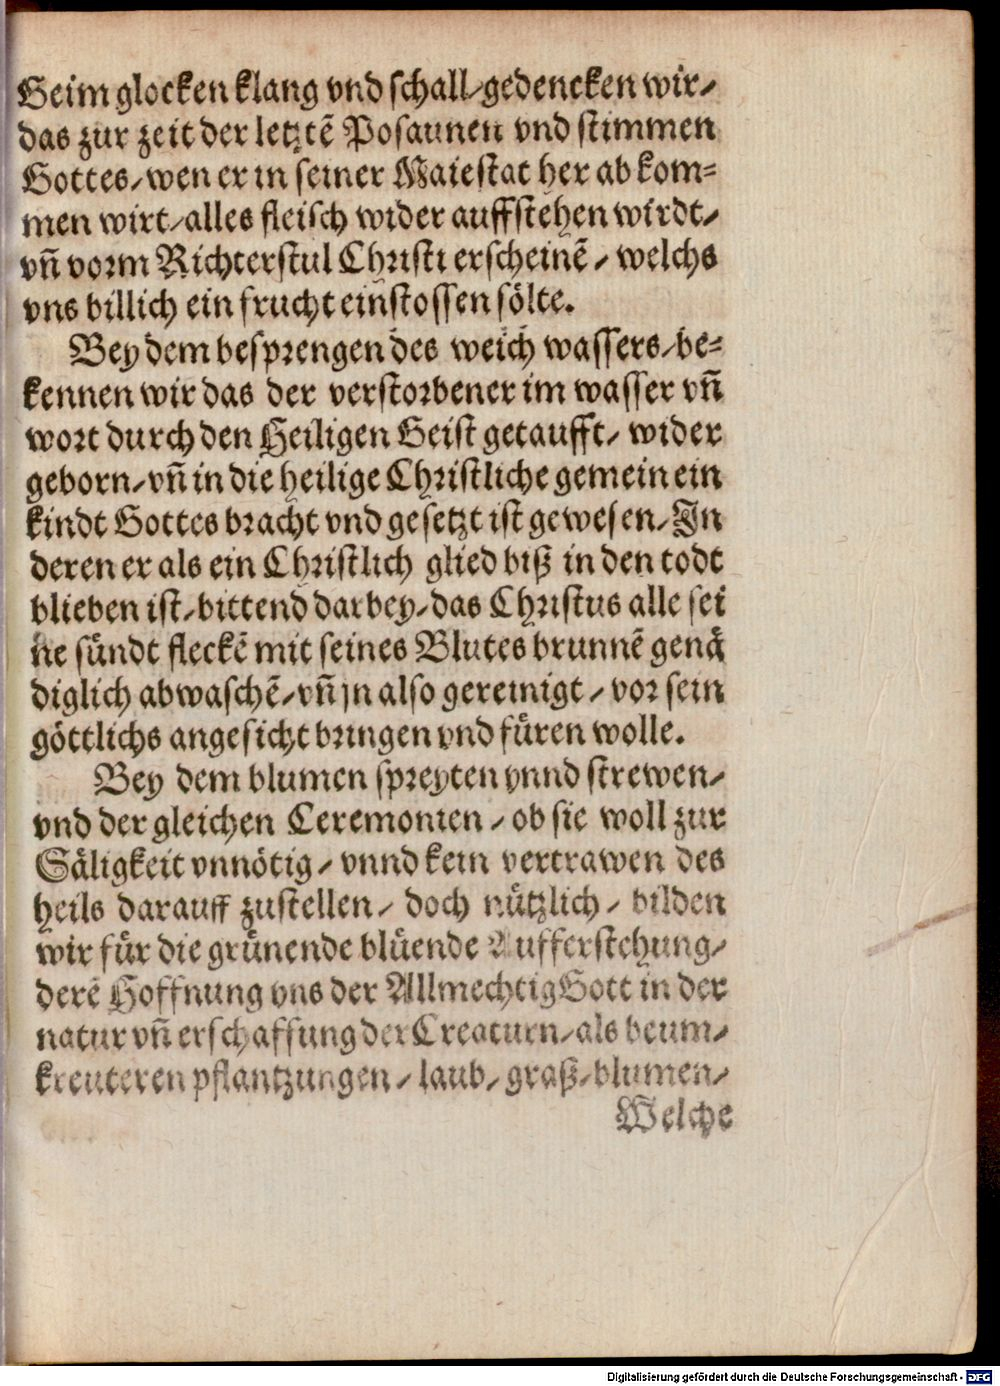 Beim glocken klang vnd schall/gedencken wir/
das zur zeit der letztē Posaunen vnd stimmen
Gottes/wen er in seiner Maiestat her ab kom=
men wirt/alles fleisch wider auffstehen wirdt/
vñ vorm Richterstul Christi erscheinē/welchs
vns billich ein frucht einstossen sölte.
Bey dem besprengen des weich wassers/be=
kennen wir das der verstorbener im wasser vñ
wort durch den Heiligen Geist getaufft/wider
geborn/vñ in die heilige Christliche gemein ein
kindt Gottes bracht vnd gesetzt ist gewesen/In
deren er als ein Christlich glied biß in den todt
blieben ist/bittend darbey/das Christus alle sei
ne sündt fleckē mit seines Blutes brunnē genä
diglich abwaschē/vñ jn also gereinigt/vor sein
göttlichs angesicht bringen vnd füren wolle.
Bey dem blumen spreyten vnnd strewen/
vnd der gleichen Ceremonien/ob sie woll zur
Säligkeit vnnötig/vnnd kein vertrawen des
heils darauff zustellen/doch nützlich/bilden
wir für die grünende blüende Aufferstehung/
derē Hoffnung vns der Allmechtig Gott in der
natur vñ erschaffung der Creaturn/als beum/
kreuteren pflantzungen/laub/graß/blumen/
Welche
Digitalisierung gefördert durch die Deutsche Forschungsgemeinschaft - DFG